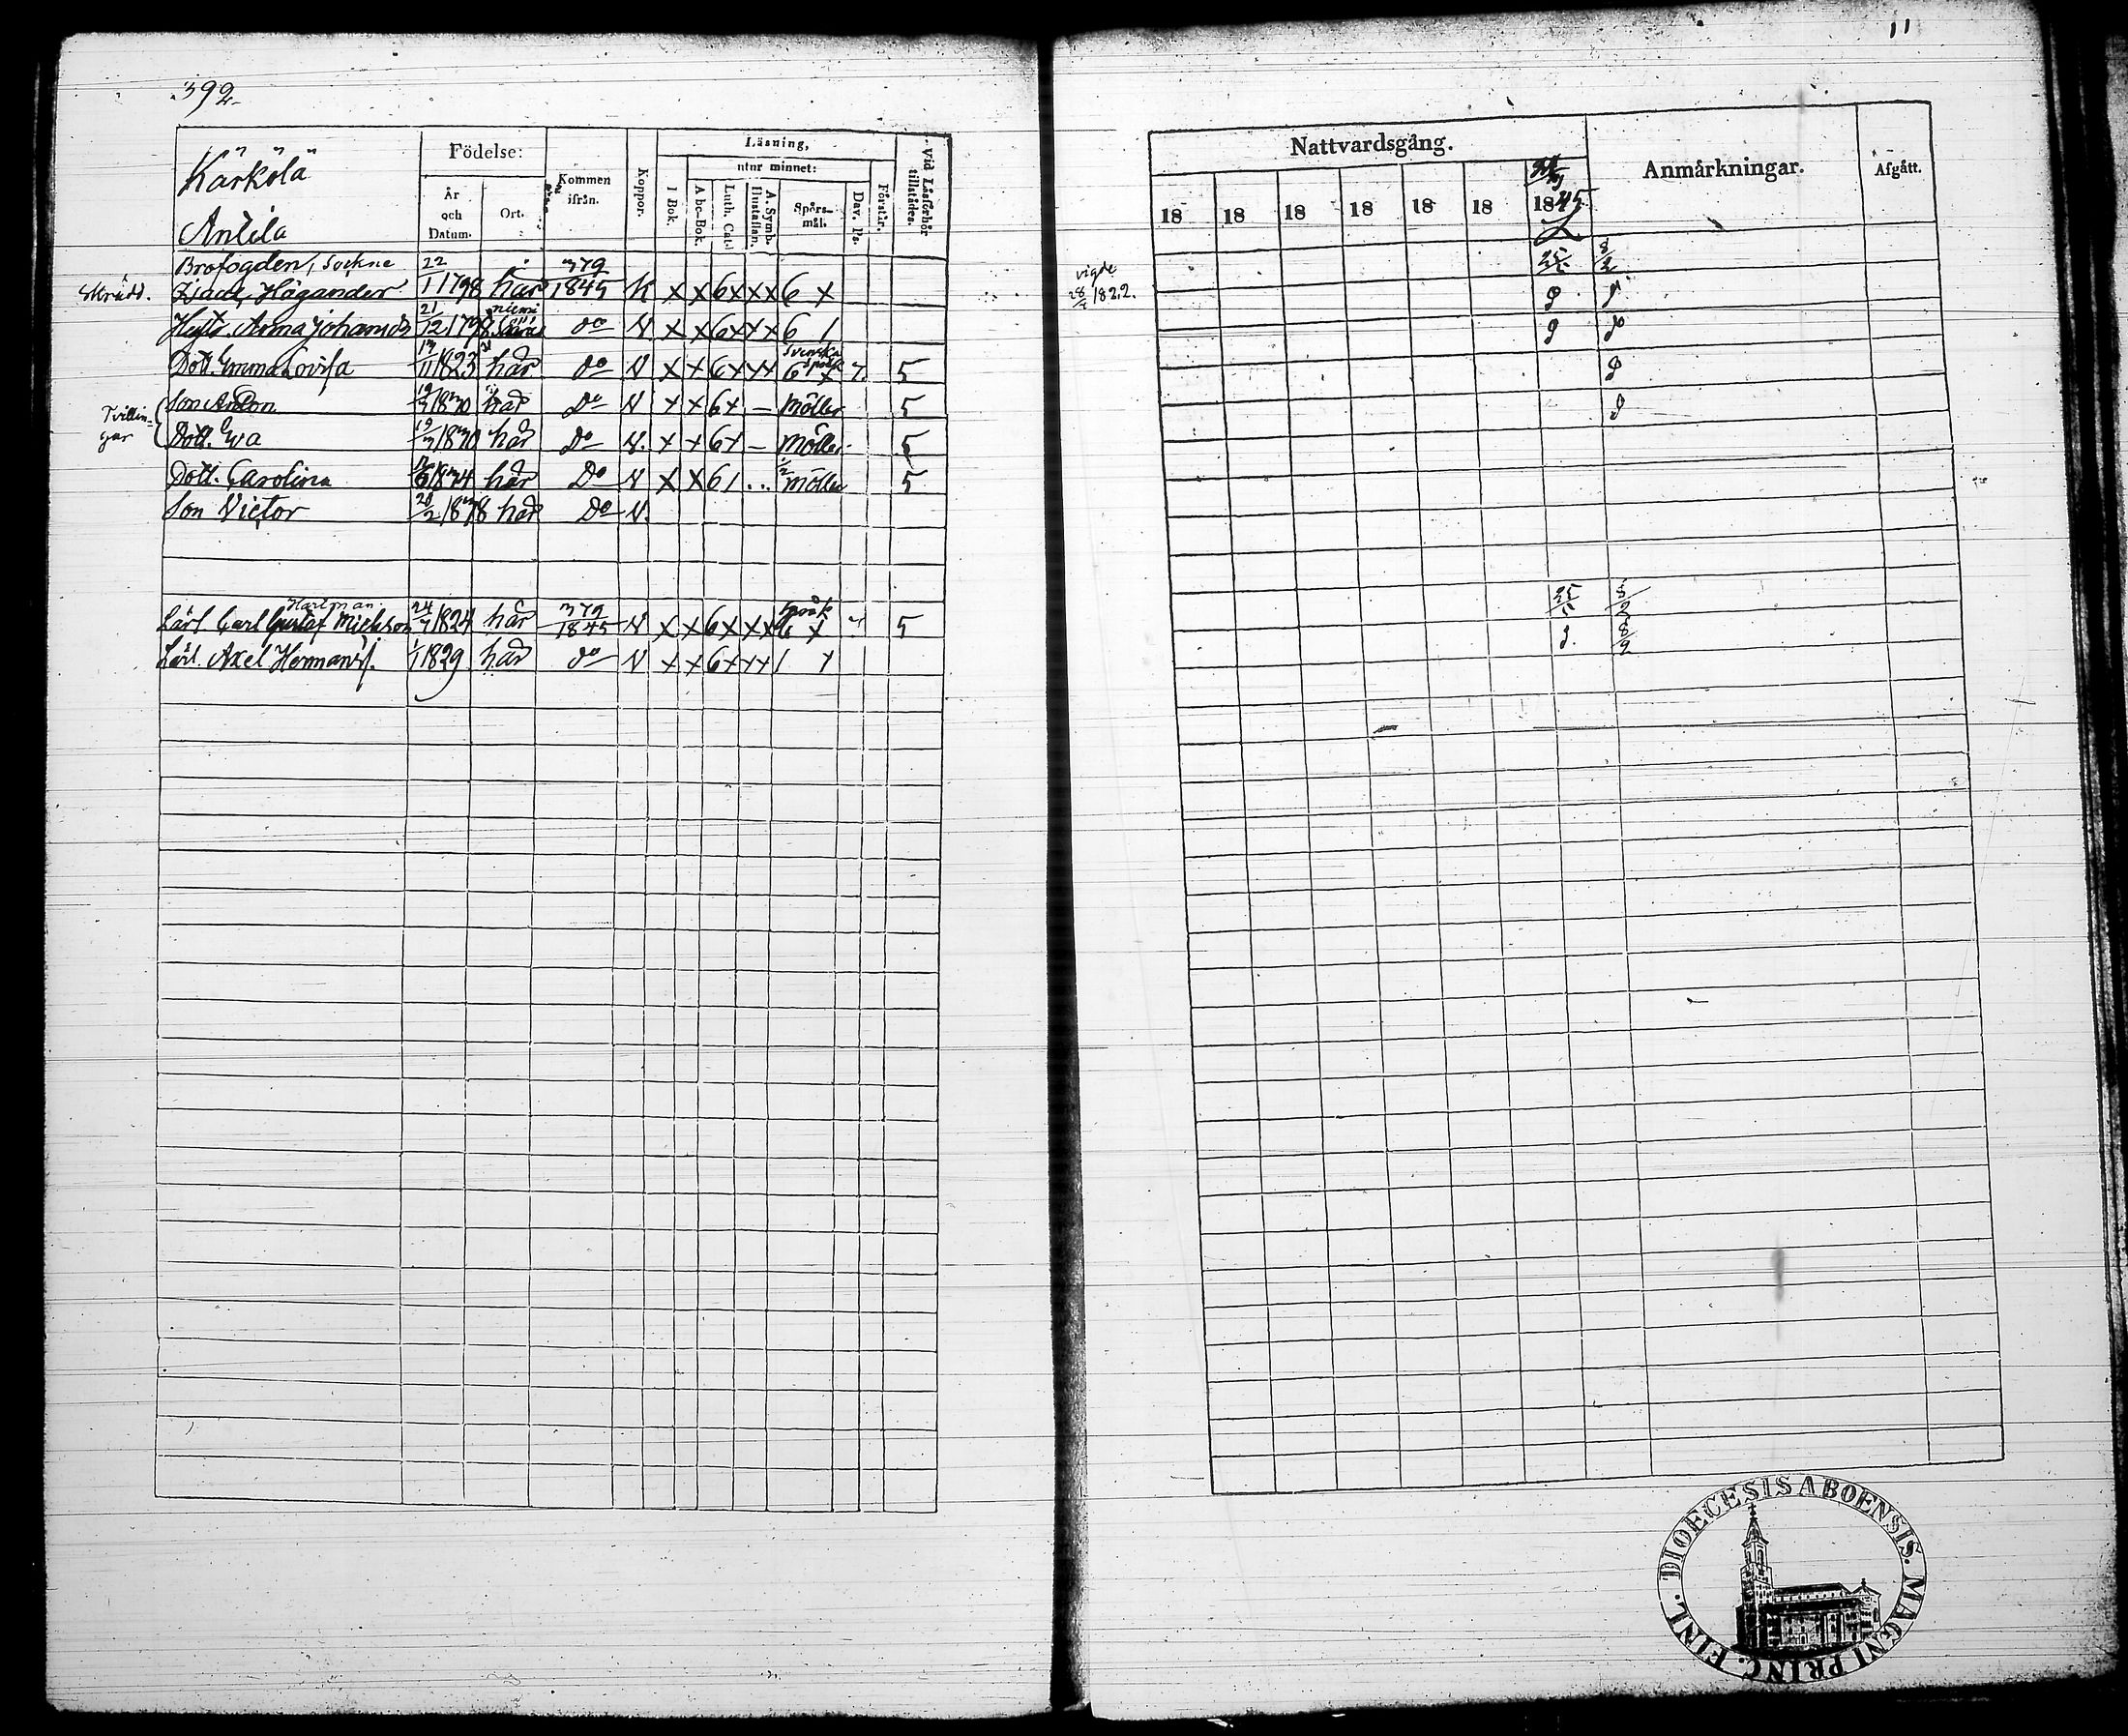 392
Födelse:
Kommen ifrån.
Koppor.
Läsning,
utur minnet:
Vid Läsförhör tillstädes.
Kärkölä
År och Datum.
Ort.
I Bok.
Abc-Bok.
Luth. Cat.
A. Symb. Hustaflan.
Spörs-mål.
Dav. Ps.
Förstår.
Antila
Brofogden, Sockne 22 379
Skrädd. Isaac Hägander 1 1798 här 1845 K x x 6x xx 6 x
Hust. Anna Johansd. 21/12 1798 do N x x 6x xx 6 1
Dott. Emma Lovisa 13/11 1823 här do N x x 6x xx 6 x 7. 5
Svenska språk
Tvillin-gar
Son Anton 19/3 1830 här Do N x x 6x – Möller 5
Dott. Eva 19/3 1830 här Do N. x x 6x – Möller 5
Dott. Carolina 1834 här Do N x x 61 .. 1/2 Möller 5
Son Victor 28/2 1838 här Do N.
Hartman
Lärl. Carl Gustaf Michson 24/7 1824 här 379/1845 N x x 6x xx 6 x 5
Språk
Lärl. Axel Hermansf. 1/1 1829 här do N x x 6x xx 1 x
11
Nattvardsgång.
Anmärkningar.
Afgått.
18 18 18 18 18 18 1845
vigde 28/7 1822.
25 8/2
25 3/2
8/2
DIOECESIS ABOENSIS. MAGNI PRINC. FINL.